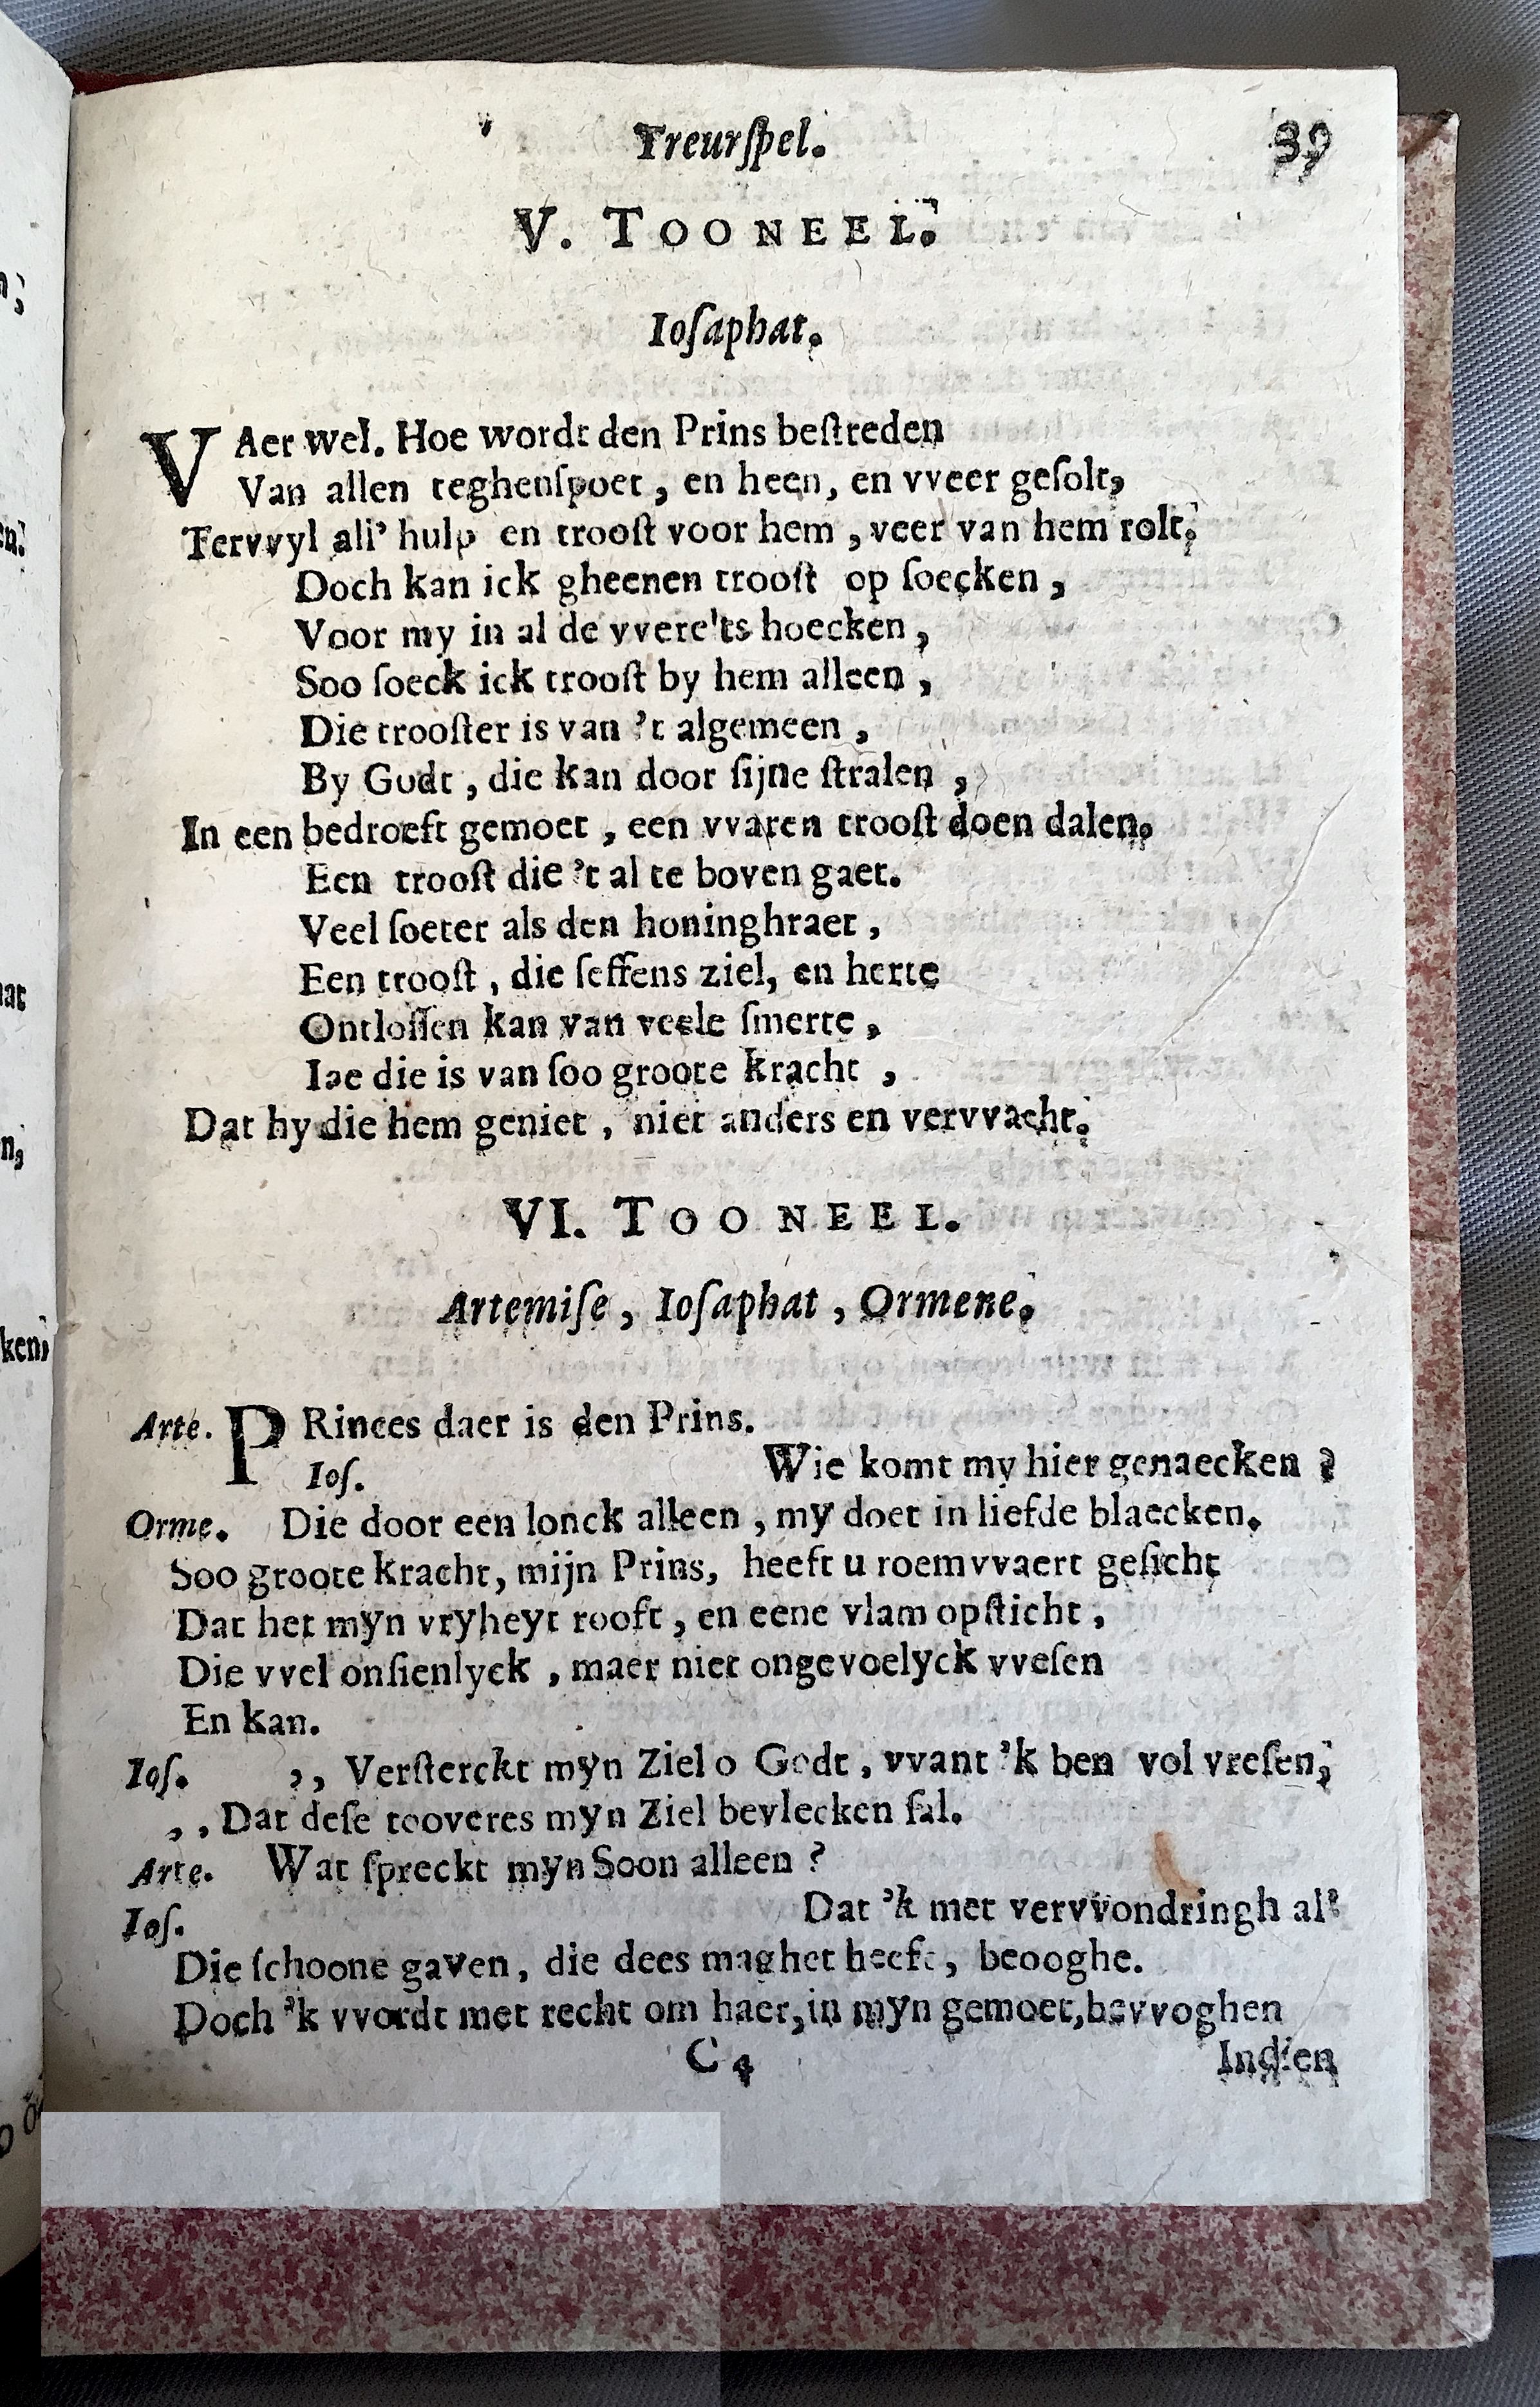 Treurſpel.
39
V. TOONEEL.
Ioſaphat.
VAer wel. Hoe wordt den Prins beſtreden
Van allen teghenſpoet, en heen, en vveer geſolt,
Tervvyl all' hulp en trooſt voor hem, veer van hem rolt,
Doch kan ick gheenen trooſt op ſoecken,
Voor my in al de vvere'ts hoecken,
Soo ſoeck ick trooſt by hem alleen,
Die trooſter is van 't algemeen,
By Godt, die kan door ſijne ſtralen,
In een bedroeft gemoet, een vvaren trooſt doen dalen,
Een trooſt die 't al te boven gaet.
Veel ſoeter als den honinghraet,
Een trooſt, die ſeffens ziel, en herte
Ontloſſen kan van veele ſmerte,
Iae die is van ſoo groote kracht,
Dat hy die hem geniet, niet anders en vervvacht.
VI. TOONEEL.
Artemiſe, Ioſaphat, Ormene.
Arte. PRinces daer is den Prins.
Ioſ. Wie komt my hier genaecken?
Orme. Die door een lonck alleen, my doet in liefde blaecken.
Soo groote kracht, mijn Prins, heeft u roemvvaert geſicht
Dat het myn vryheyt rooft, en eene vlam opſticht,
Die vvel onſienlyck, maer niet ongevoelyck vveſen
En kan.
Ioſ. ,, Verſterckt myn Ziel o Godt, vvant 'k ben vol vreſen,
,, Dat deſe tooveres myn Ziel bevlecken ſal.
Arte. Wat ſpreckt myn Soon alleen?
Ioſ. Dat 'k met vervvondringh al'
Die ſchoone gaven, die dees maghet heeft, beooghe.
Doch 'k vvordt met recht om haer, in myn gemoet, bevvoghen
C 4
Indien